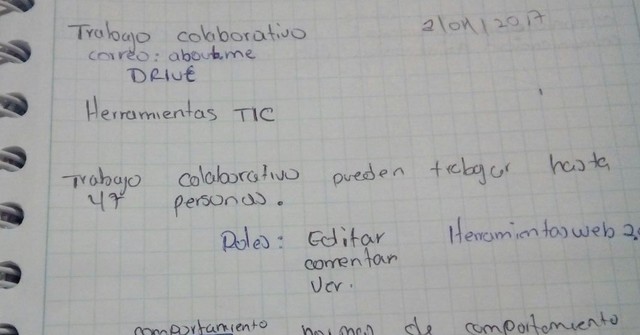 Trabajo colaborativo 2/04/2017
correo: aboutme
DRIVE
Herramientas TIC
Trabajo colaborativo pueden trabajar hasta
47 personas.
Roles: Editar Herramientas web 2.
comentar
Ver.
comportamiento normas de comportamiento